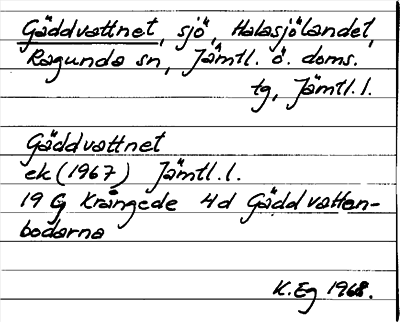 Gäddvattnet, sjö, Halasjölandet,
Ragunda sn, Jämtl. ö. doms.
tg, Jämtl. l.
Gäddvattnet
ek (1967) Jämtl. l.
19 G Krångede 4d Gäddvatten-
bodarna
K. Eg 1968.